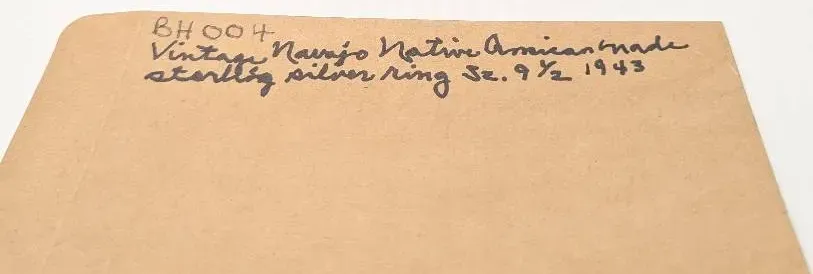 BH 004
Vintage Navajo Native American made
sterling silver ring Sz. 9 1/2 1943